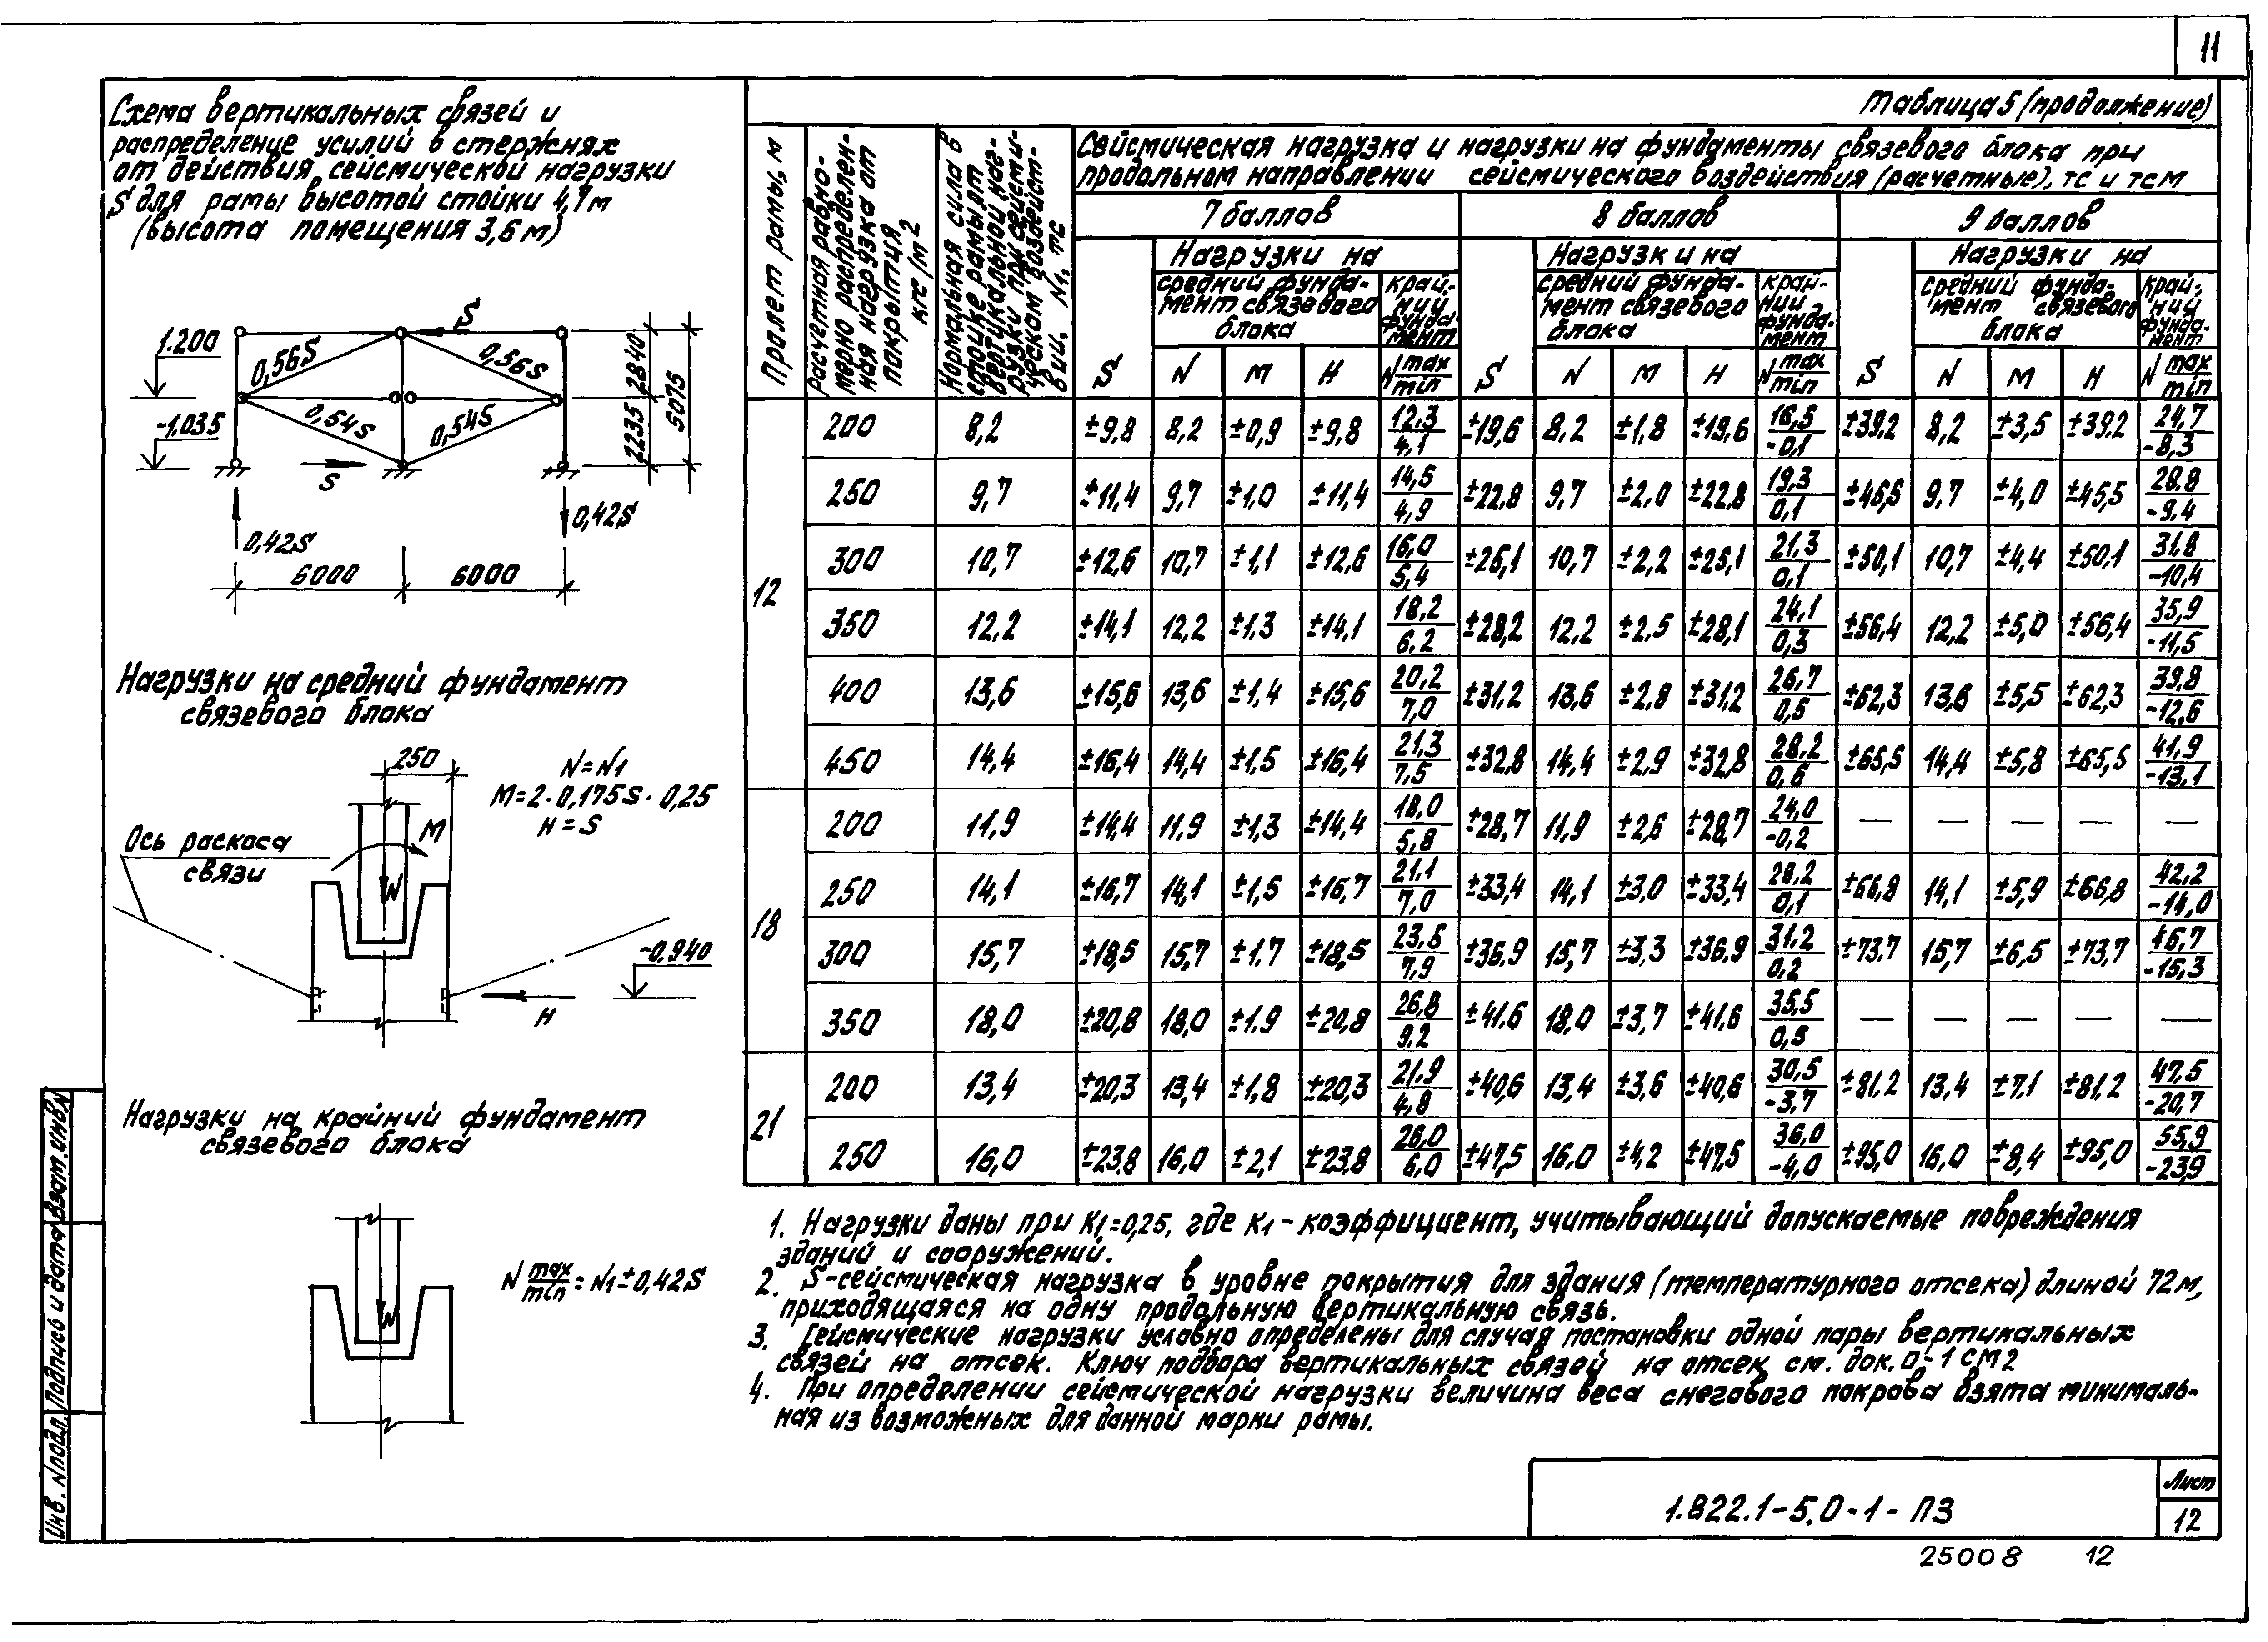 11
Схема вертикальных связей и
распределение усилий в стержнях
от действия сейсмической нагрузки
S для рамы высотой стойки 4,7м
(высота помещения 3,6 м)
S
1.200
0,56S
0,56S
2840
5075
-1.035
0,54S
0,54S
2235
S
0,42S
0,42S
6000
6000
Нагрузки на средний фундамент
связевого блока
250
N=N1
M=2·0,175S·0,25
H=S
M
Ось раскоса
связи
N
-0.940
H
Нагрузки на крайний фундамент
связевого блока
N max/min = N1±0,42S
N
Таблица 5 (продолжение)
Пролет рамы, м
Расчетная равно-
мерно распределен-
ная нагрузка от
покрытия
кгс/м2
Нормальная сила в
стойке рамы от
вертикальной наг-
рузки при сейсми-
ческом воздейст-
вии, N1, тс
Сейсмическая нагрузка и нагрузки на фундаменты связевого блока при
продольном направлении сейсмического воздействия (расчетные), тс и тсм
7 баллов 8 баллов 9 баллов
Нагрузки на Нагрузки на Нагрузки на
средний фунда- край- средний фунда- край- средний фунда- край-
мент связевого ний мент связевого ний мент связевого ний
блока фунда- блока фунда- блока фунда-
мент мент мент
S N M H N max/min S N M H N max/min S N M H N max/min
12
200 8,2 ±9,8 8,2 ±0,9 ±9,8 12,3/4,1 ±19,6 8,2 ±1,8 ±19,6 16,5/-0,1 ±39,2 8,2 ±3,5 ±39.2 24,7/-8,3
250 9,7 ±11,4 9,7 ±1,0 ±11,4 14,5/4,9 ±22,8 9,7 ±2,0 ±22,8 19,3/0,1 ±45,5 9,7 ±4,0 ±45,5 28,8/-9,4
300 10,7 ±12,6 10,7 ±1,1 ±12,6 16,0/5,4 ±25,1 10,7 ±2,2 ±25,1 21,3/0,1 ±50,1 10,7 ±4,4 ±50,1 31,8/-10,4
350 12,2 ±14,1 12,2 ±1,3 ±14,1 18,2/6,2 ±28,2 12,2 ±2,5 ±28,1 24,1/0,3 ±56,4 12,2 ±5,0 ±56,4 35,9/-11,5
400 13,6 ±15,6 13,6 ±1,4 ±15,6 20,2/7,0 ±31,2 13,6 ±2,8 ±31,2 26,7/0,5 ±62,3 13,6 ±5,5 ±62,3 39,8/-12,6
450 14,4 ±16,4 14,4 ±1,5 ±16,4 21,3/7,5 ±32,8 14,4 ±2,9 ±32,8 28,2/0,6 ±65,5 14,4 ±5,8 ±65,5 41,9/-13,1
18
200 11,9 ±14,4 11,9 ±1,3 ±14,4 18,0/5,8 ±28,7 11,9 ±2,6 ±28,7 24,0/-0,2 — — — — —
250 14,1 ±16,7 14,1 ±1,5 ±16,7 21,1/7,0 ±33,4 14,1 ±3,0 ±33,4 28,2/0,1 ±66,8 14,1 ±5,9 ±66,8 42,2/-14,0
300 15,7 ±18,5 15,7 ±1.7 ±18,5 23,5/7,9 ±36,9 15,7 ±3,3 ±36,9 31,2/0,2 ±73,7 15,7 ±6,5 ±73,7 46,7/-15,3
350 18,0 ±20,8 18,0 ±1.9 ±20,8 26,8/9,2 ±41.6 18,0 ±3,7 ±41,6 35,5/0,5 — — — — —
21
200 13,4 ±20,3 13,4 ±1,8 ±20,3 21,9/4,8 ±40,6 13,4 ±3,6 ±40,6 30,5/-3,7 ±81,2 13,4 ±7,1 ±81,2 47,5/-20,7
250 16,0 ±23,8 16,0 ±2,1 ±23,8 26,0/6,0 ±47,5 16,0 ±4,2 ±47,5 36,0/-4,0 ±95,0 16,0 ±8,4 ±95,0 55,9/-23,9
1. Нагрузки даны при К1=0,25, где К1 - коэффициент, учитывающий допускаемые повреждения
зданий и сооружений.
2. S-сейсмическая нагрузка в уровне покрытия для здания (температурного отсека) длиной 72м,
приходящаяся на одну продольную вертикальную связь.
3. Сейсмические нагрузки условно определены для случая постановки одной пары вертикальных
связей на отсек. Ключ подбора вертикальных связей на отсек см. док. 0-1 СМ2
4. При определении сейсмической нагрузки величина веса снегового покрова взята минималь-
ная из возможных для данной марки рамы.
Инв. N подл. Подпись и дата Взам. инв. N
1.822.1-5.0-1-ПЗ
Лист
12
25008 12